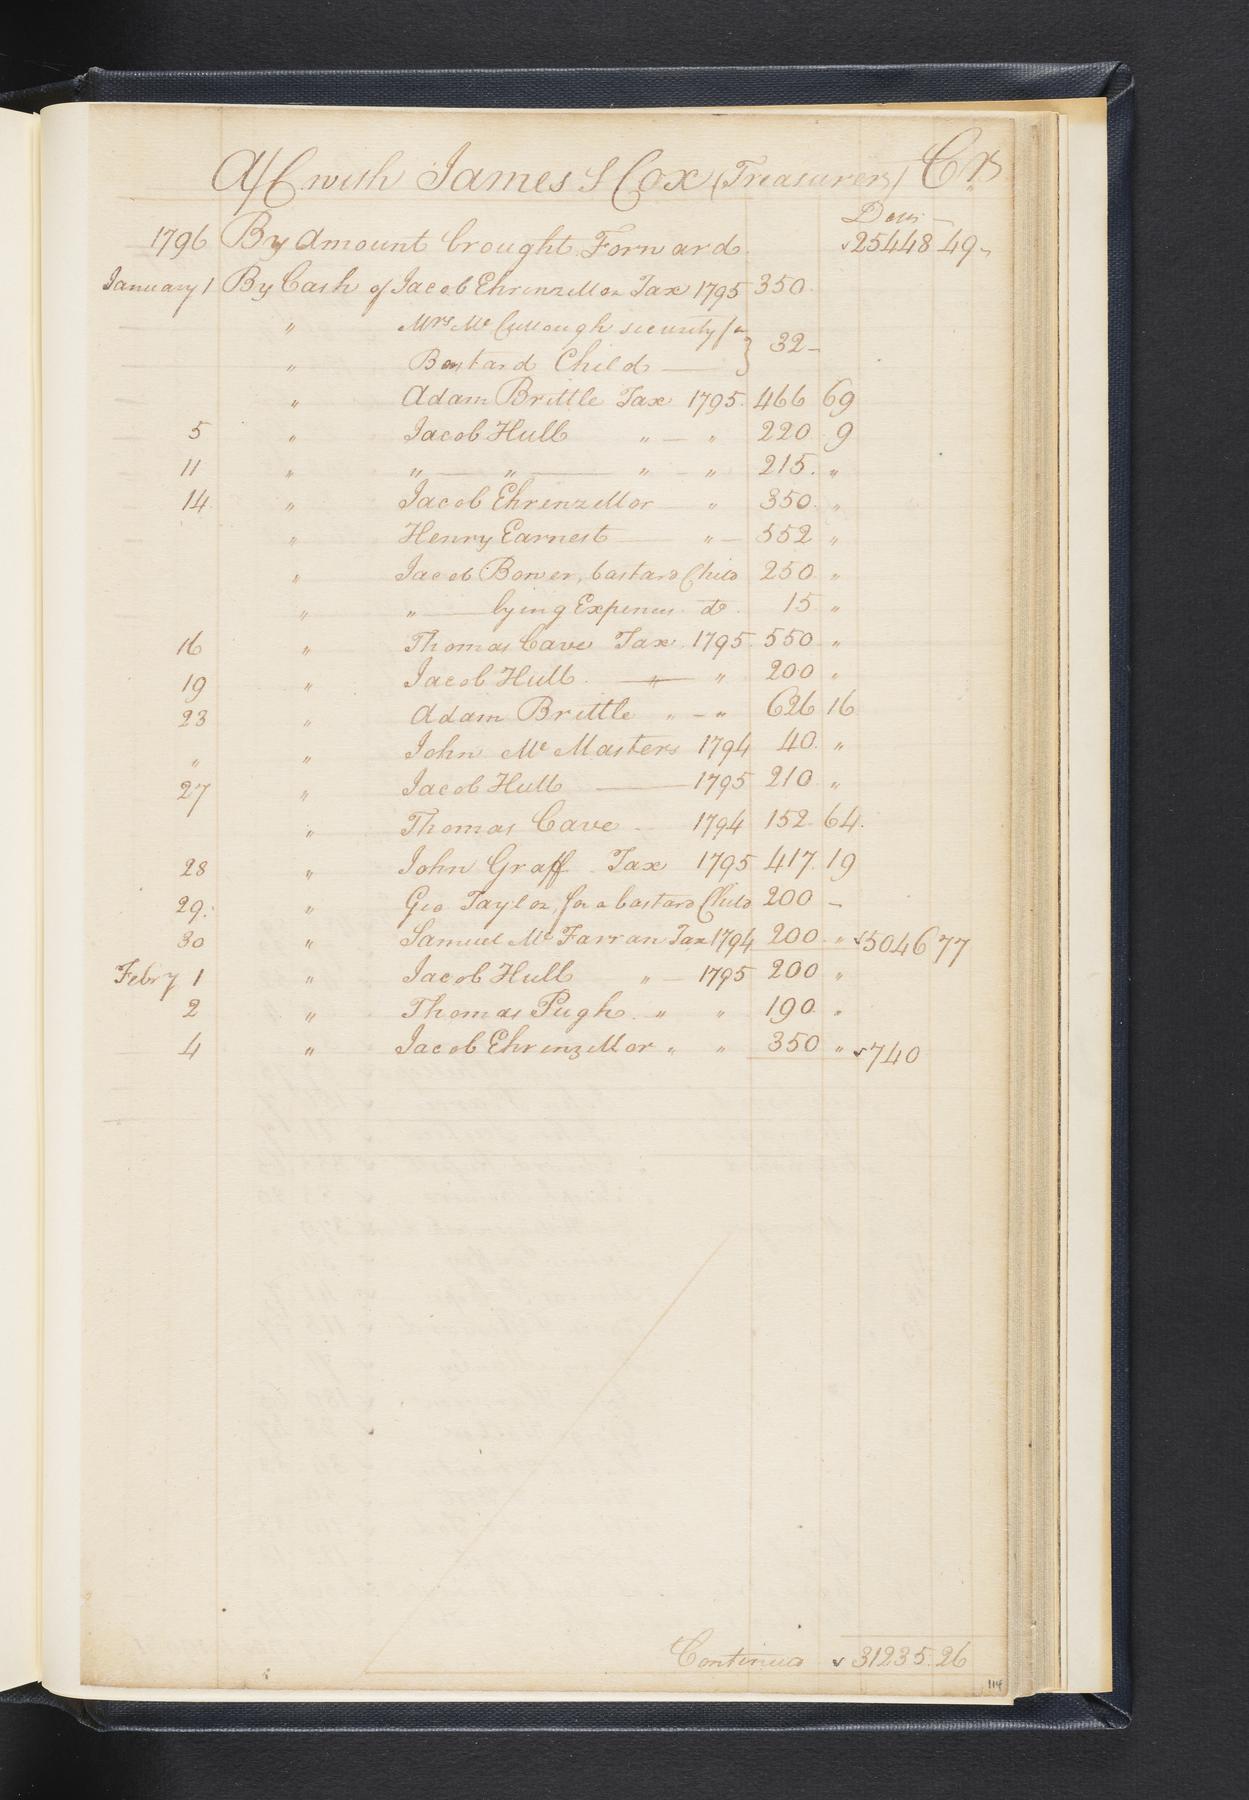 A/C with James S Cox (Treasurer) Cr
Dolls
1796 By Amount brought Forward 25448 49
January 1 By Cash of Jacob Ehrenzellor Tax 1795 350
" Mrs Mc Cullough security for } 32 -
" Bastard Child
" Adam Brittle Tax 1795 466 69
5 " Jacob Hull " " 220 9
11 " " " " " 215 "
14 " Jacob Ehrenzellor " 350 "
" Henry Earnest " 552 "
" Jacob Bower, bastard Child 250 "
" " lying Expences do 15 "
16 " Thomas Cave Tax 1795 550 "
19 " Jacob Hull " " 200 "
23 " Adam Brittle " " 626 16
" " John Mc Masters 1794 40 "
27 " Jacob Hull 1795 210 "
" Thomas Cave 1794 152 64
28 " John Graff Tax 1795 417 19
29 " Geo Taylor, for a bastard Child 200 -
30 " Samuel Mc Farran Tax 1794 200 " 5046 77
Febry 1 " Jacob Hull " 1795 200 "
2 " Thomas Pugh " " 190 "
4 " Jacob Ehrenzellor " " 350 " 740
Continued 31235 26
114